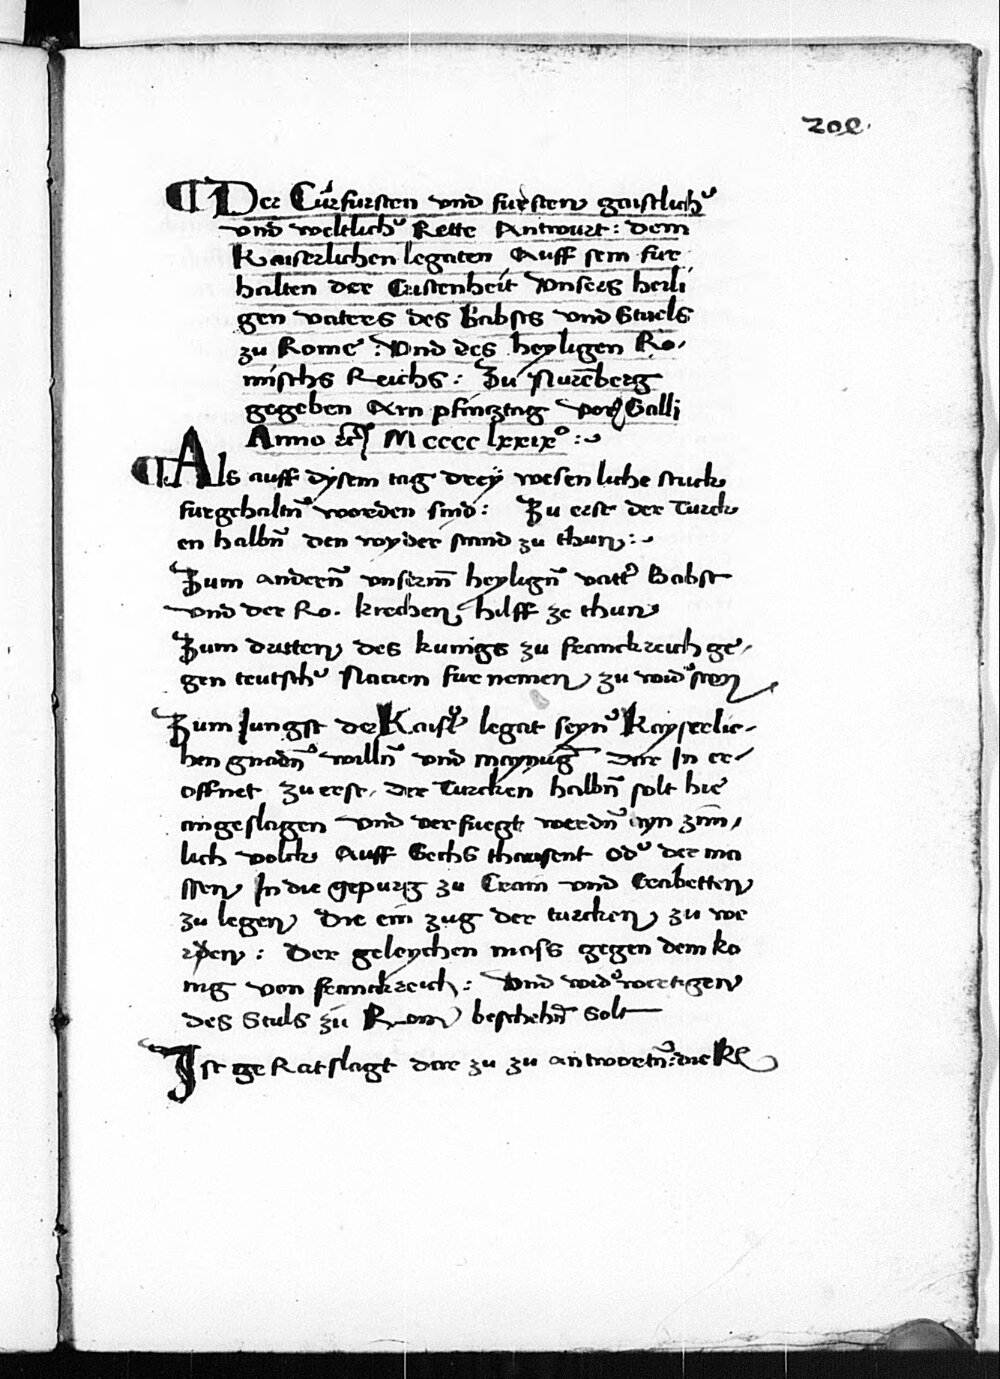 208.
¶ Der Curfursten vnd fursten gaistlich᷒
vnd weltlich᷒ Rette Antwurt: dem
Kaiserlichen legaten Auff sein fur
halten der Cristenheit Vnsers heili
gen vaters des Babsts vnd Stuels
zu Rome: Vnd des heyligen Ro⸗
mischs Reichs: Zu Nur̄eberg
gegeben Am pfincztag vor Galli
Anno M cccc lxxixº :~
¶ Als auff dysem tag drey wesenliche stuck
furgehaltn̄ worden sind: Zu erst der Turck
en halbn̄ den wyder stand zu thun:~
Zum andern̄ vnserm̄ heylign̄ vatt᷒ Babst
vnd der Ro. kirchen hilff ze thun
Zum dritten des kunigs zu franckreich ge⸗
gen teutsch᷒ Nacion furnemen zu wid᷒sten
Zum Jungst der Kais᷒ legat seyn̄ Kayserlic⸗
hen gnadn̄ willn̄ vnd maynūg dar In er⸗
offnet zu erst, der Turcken halbn̄ solt hie
angeslagen vnd verfuegt werdn̄ ayn zim⸗
lich volck Auff Sechs thausent od᷒ der ma
ssen In die gepurg zu Crain vnd Crabetten
zu legen die ein zug der turcken zu we
ren: Der geleychen mass gegen dem ko
nig von franckreich: Vnd wid᷒wertigen
des Stuls zu Rom beschehn̄ solt
Ist geRatslagt dar zu zu antwortn̄: die